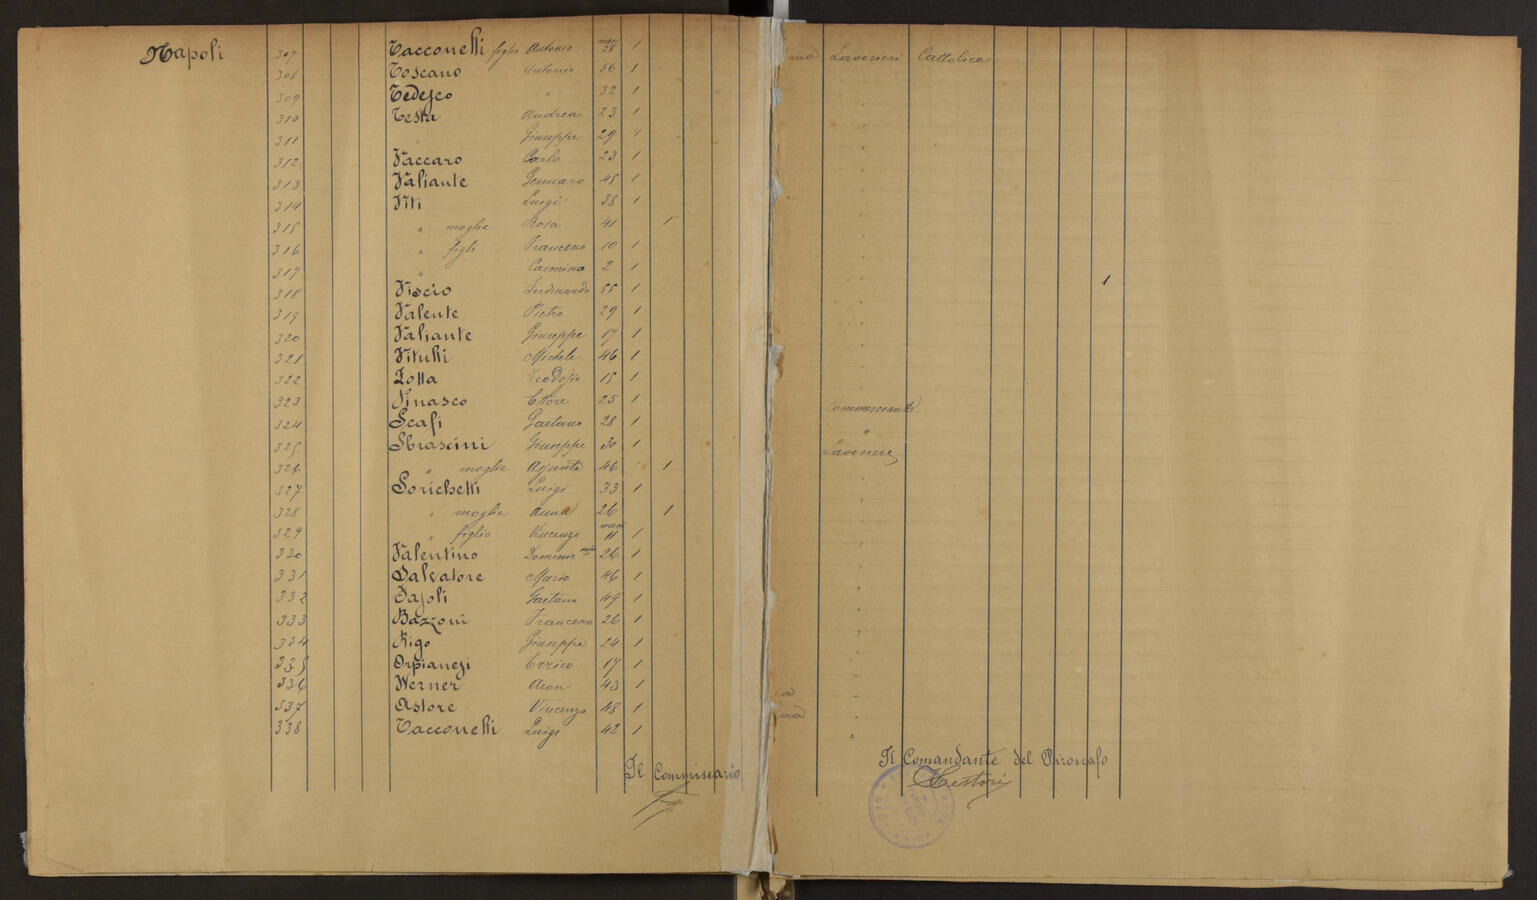 Napoli 307 Tacconelli figlio Antonio mesi 28 1 Lavorieri Cattolica
308 Toscano Antonio 56 1
309 Tedesco " 32 1
310 Testa Andrea 23 1
311 Giuseppe 29 1
312 Vaccaro Carlo 23 1
313 Valiante Gennaro 45 1
314 Viti Luigi 38 1
315 " moglie Rosa 41 1
316 " figli Francesco 10 1
317 " Carmino 2 1 1
318 Viscio Ferdinando 55 1
319 Valente Pietro 29 1
320 Valiante Giuseppe 17 1
321 Vitulli Michele 46 1
322 Zotta Teodosio 15 1
323 Vinasco Ettore 25 1 Commerciante
324 Scafi Gaetano 28 1 "
325 Sbrascini Giuseppe 30 1 Lavoriere
326 " moglie Assunta 46 1
327 Sorichetti Luigi 33 1
328 " moglie Anna 26 1
329 " figlio Vincenzo mesi 11 1
330 Valentino Domenico 26 1
331 Salvatore Mario 46 1
332 Gaetano 49 1
333 Bazzoni Francesco 26 1
334 Rigo Giuseppe 24 1
335 Orpianesi Errico 17 1
336 Werner Aron 43 1
337 Astore Vincenzo 48 1
338 Tacconelli Luigi 42 1
Il Commissario
Il Comandante del Piroscafo